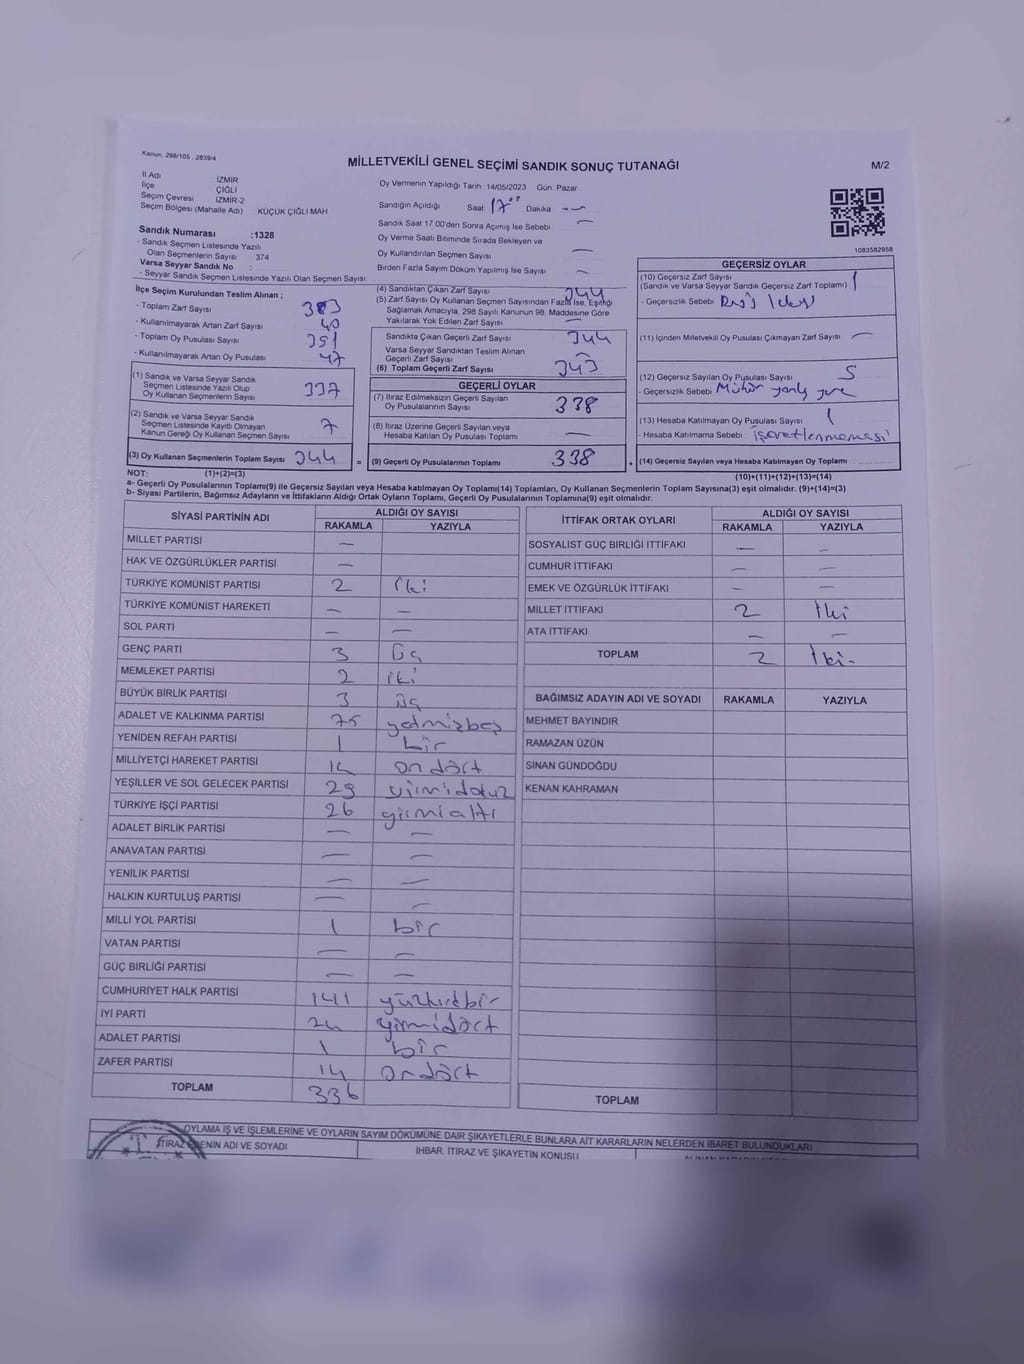 Kanun: 298/105 , 2839/4
MİLLETVEKİLİ GENEL SEÇİMİ SANDIK SONUÇ TUTANAĞI
M/2
İl Adı İZMİR
İlçe ÇİĞLİ
Seçim Çevresi İZMİR-2
Seçim Bölgesi (Mahalle Adı) KÜÇÜK ÇİĞLİ MAH
Sandık Numarası :1328
- Sandık Seçmen Listesinde Yazılı
Olan Seçmenlerin Sayısı 374
Varsa Seyyar Sandık No :
- Seyyar Sandık Seçmen Listesinde Yazılı Olan Seçmen Sayısı
Oy Vermenin Yapıldığı Tarih :14/05/2023 Gün :Pazar
Sandığın Açıldığı Saat 17°° Dakika —
Sandık Saat 17:00'den Sonra Açımış İse Sebebi —
Oy Verme Saati Bitiminde Sırada Bekleyen ve
Oy Kullandırılan Seçmen Sayısı —
Birden Fazla Sayım Döküm Yapılmış İse Sayısı —
1083582958
İlçe Seçim Kurulundan Teslim Alınan ;
- Toplam Zarf Sayısı 383
- Kullanılmayarak Artan Zarf Sayısı 40
- Toplam Oy Pusulası Sayısı 351
- Kullanılmayarak Artan Oy Pusulası 47
(1) Sandık ve Varsa Seyyar Sandık
Seçmen Listesinde Yazılı Olup
Oy Kullanan Seçmenlerin Sayısı 337
(2) Sandık ve Varsa Seyyar Sandık
Seçmen Listesinde Kayıtlı Olmayan
Kanun Gereği Oy Kullanan Seçmen Sayısı 7
(3) Oy Kullanan Seçmenlerin Toplam Sayısı 344 =
(4) Sandıktan Çıkan Zarf Sayısı 344
(5) Zarf Sayısı Oy Kullanan Seçmen Sayısından Fazla İse, Eşitliği
Sağlamak Amacıyla, 298 Sayılı Kanunun 98. Maddesine Göre
Yakılarak Yok Edilen Zarf Sayısı —
Sandıkta Çıkan Geçerli Zarf Sayısı 344
Varsa Seyyar Sandıktan Teslim Alınan
Geçerli Zarf Sayısı —
(6) Toplam Geçerli Zarf Sayısı 343
GEÇERLİ OYLAR
(7) İtiraz Edilmeksizin Geçerli Sayılan
Oy Pusulalarının Sayısı 338
(8) İtiraz Üzerine Geçerli Sayılan veya
Hesaba Katılan Oy Pusulası Toplamı —
(9) Geçerli Oy Pusulalarının Toplamı 338 +
GEÇERSİZ OYLAR
(10) Geçersiz Zarf Sayısı 1
(Sandık ve Varsa Seyyar Sandık Geçersiz Zarf Toplamı)
- Geçersizlik Sebebi
(11) İçinden Milletvekili Oy Pusulası Çıkmayan Zarf Sayısı —
(12) Geçersiz Sayılan Oy Pusulası Sayısı 5
- Geçersizlik Sebebi Mühür yanlış yere
(13) Hesaba Katılmayan Oy Pusulası Sayısı 1
- Hesaba Katılmama Sebebi işaretlenmemesi
(14) Geçersiz Sayılan veya Hesaba Katılmayan Oy Toplamı
NOT: (1)+(2)=(3) (10)+(11)+(12)+(13)=(14)
a- Geçerli Oy Pusulalarının Toplamı(9) ile Geçersiz Sayılan veya Hesaba katılmayan Oy Toplamı(14) Toplamları, Oy Kullanan Seçmenlerin Toplam Sayısına(3) eşit olmalıdır. (9)+(14)=(3)
b- Siyasi Partilerin, Bağımsız Adayların ve İttifakların Aldığı Ortak Oyların Toplamı, Geçerli Oy Pusulalarının Toplamına(9) eşit olmalıdır.
SİYASİ PARTİNİN ADI ALDIĞI OY SAYISI
RAKAMLA YAZIYLA
MİLLET PARTİSİ —
HAK VE ÖZGÜRLÜKLER PARTİSİ —
TÜRKİYE KOMÜNİST PARTİSİ 2 iki
TÜRKİYE KOMÜNİST HAREKETİ — —
SOL PARTİ — —
GENÇ PARTİ 3 üç
MEMLEKET PARTİSİ 2 iki
BÜYÜK BİRLİK PARTİSİ 3 üç
ADALET VE KALKINMA PARTİSİ 75 yetmişbeş
YENİDEN REFAH PARTİSİ 1 bir
MİLLİYETÇİ HAREKET PARTİSİ 14 on dört
YEŞİLLER VE SOL GELECEK PARTİSİ 29 yirmidokuz
TÜRKİYE İŞÇİ PARTİSİ 26 yirmialtı
ADALET BİRLİK PARTİSİ — —
ANAVATAN PARTİSİ — —
YENİLİK PARTİSİ — —
HALKIN KURTULUŞ PARTİSİ — —
MİLLİ YOL PARTİSİ 1 bir
VATAN PARTİSİ — —
GÜÇ BİRLİĞİ PARTİSİ — —
CUMHURİYET HALK PARTİSİ 141 yüzkırkbir
İYİ PARTİ 24 yirmidört
ADALET PARTİSİ 1 bir
ZAFER PARTİSİ 14 on dört
TOPLAM 336
İTTİFAK ORTAK OYLARI ALDIĞI OY SAYISI
RAKAMLA YAZIYLA
SOSYALİST GÜÇ BİRLİĞİ İTTİFAKI — —
CUMHUR İTTİFAKI — —
EMEK VE ÖZGÜRLÜK İTTİFAKI — —
MİLLET İTTİFAKI 2 İki
ATA İTTİFAKI — —
TOPLAM 2 İki-
BAĞIMSIZ ADAYIN ADI VE SOYADI RAKAMLA YAZIYLA
MEHMET BAYINDIR
RAMAZAN ÜZÜN
SİNAN GÜNDOĞDU
KENAN KAHRAMAN
TOPLAM
OYLAMA İŞ VE İŞLEMLERİNE VE OYLARIN SAYIM DÖKÜMÜNE DAİR ŞİKAYETLERLE BUNLARA AİT KARARLARIN NELERDEN İBARET BULUNDUKLARI
İTİRAZ EDENİN ADI VE SOYADI
İHBAR, İTİRAZ VE ŞİKAYETİN KONUSU